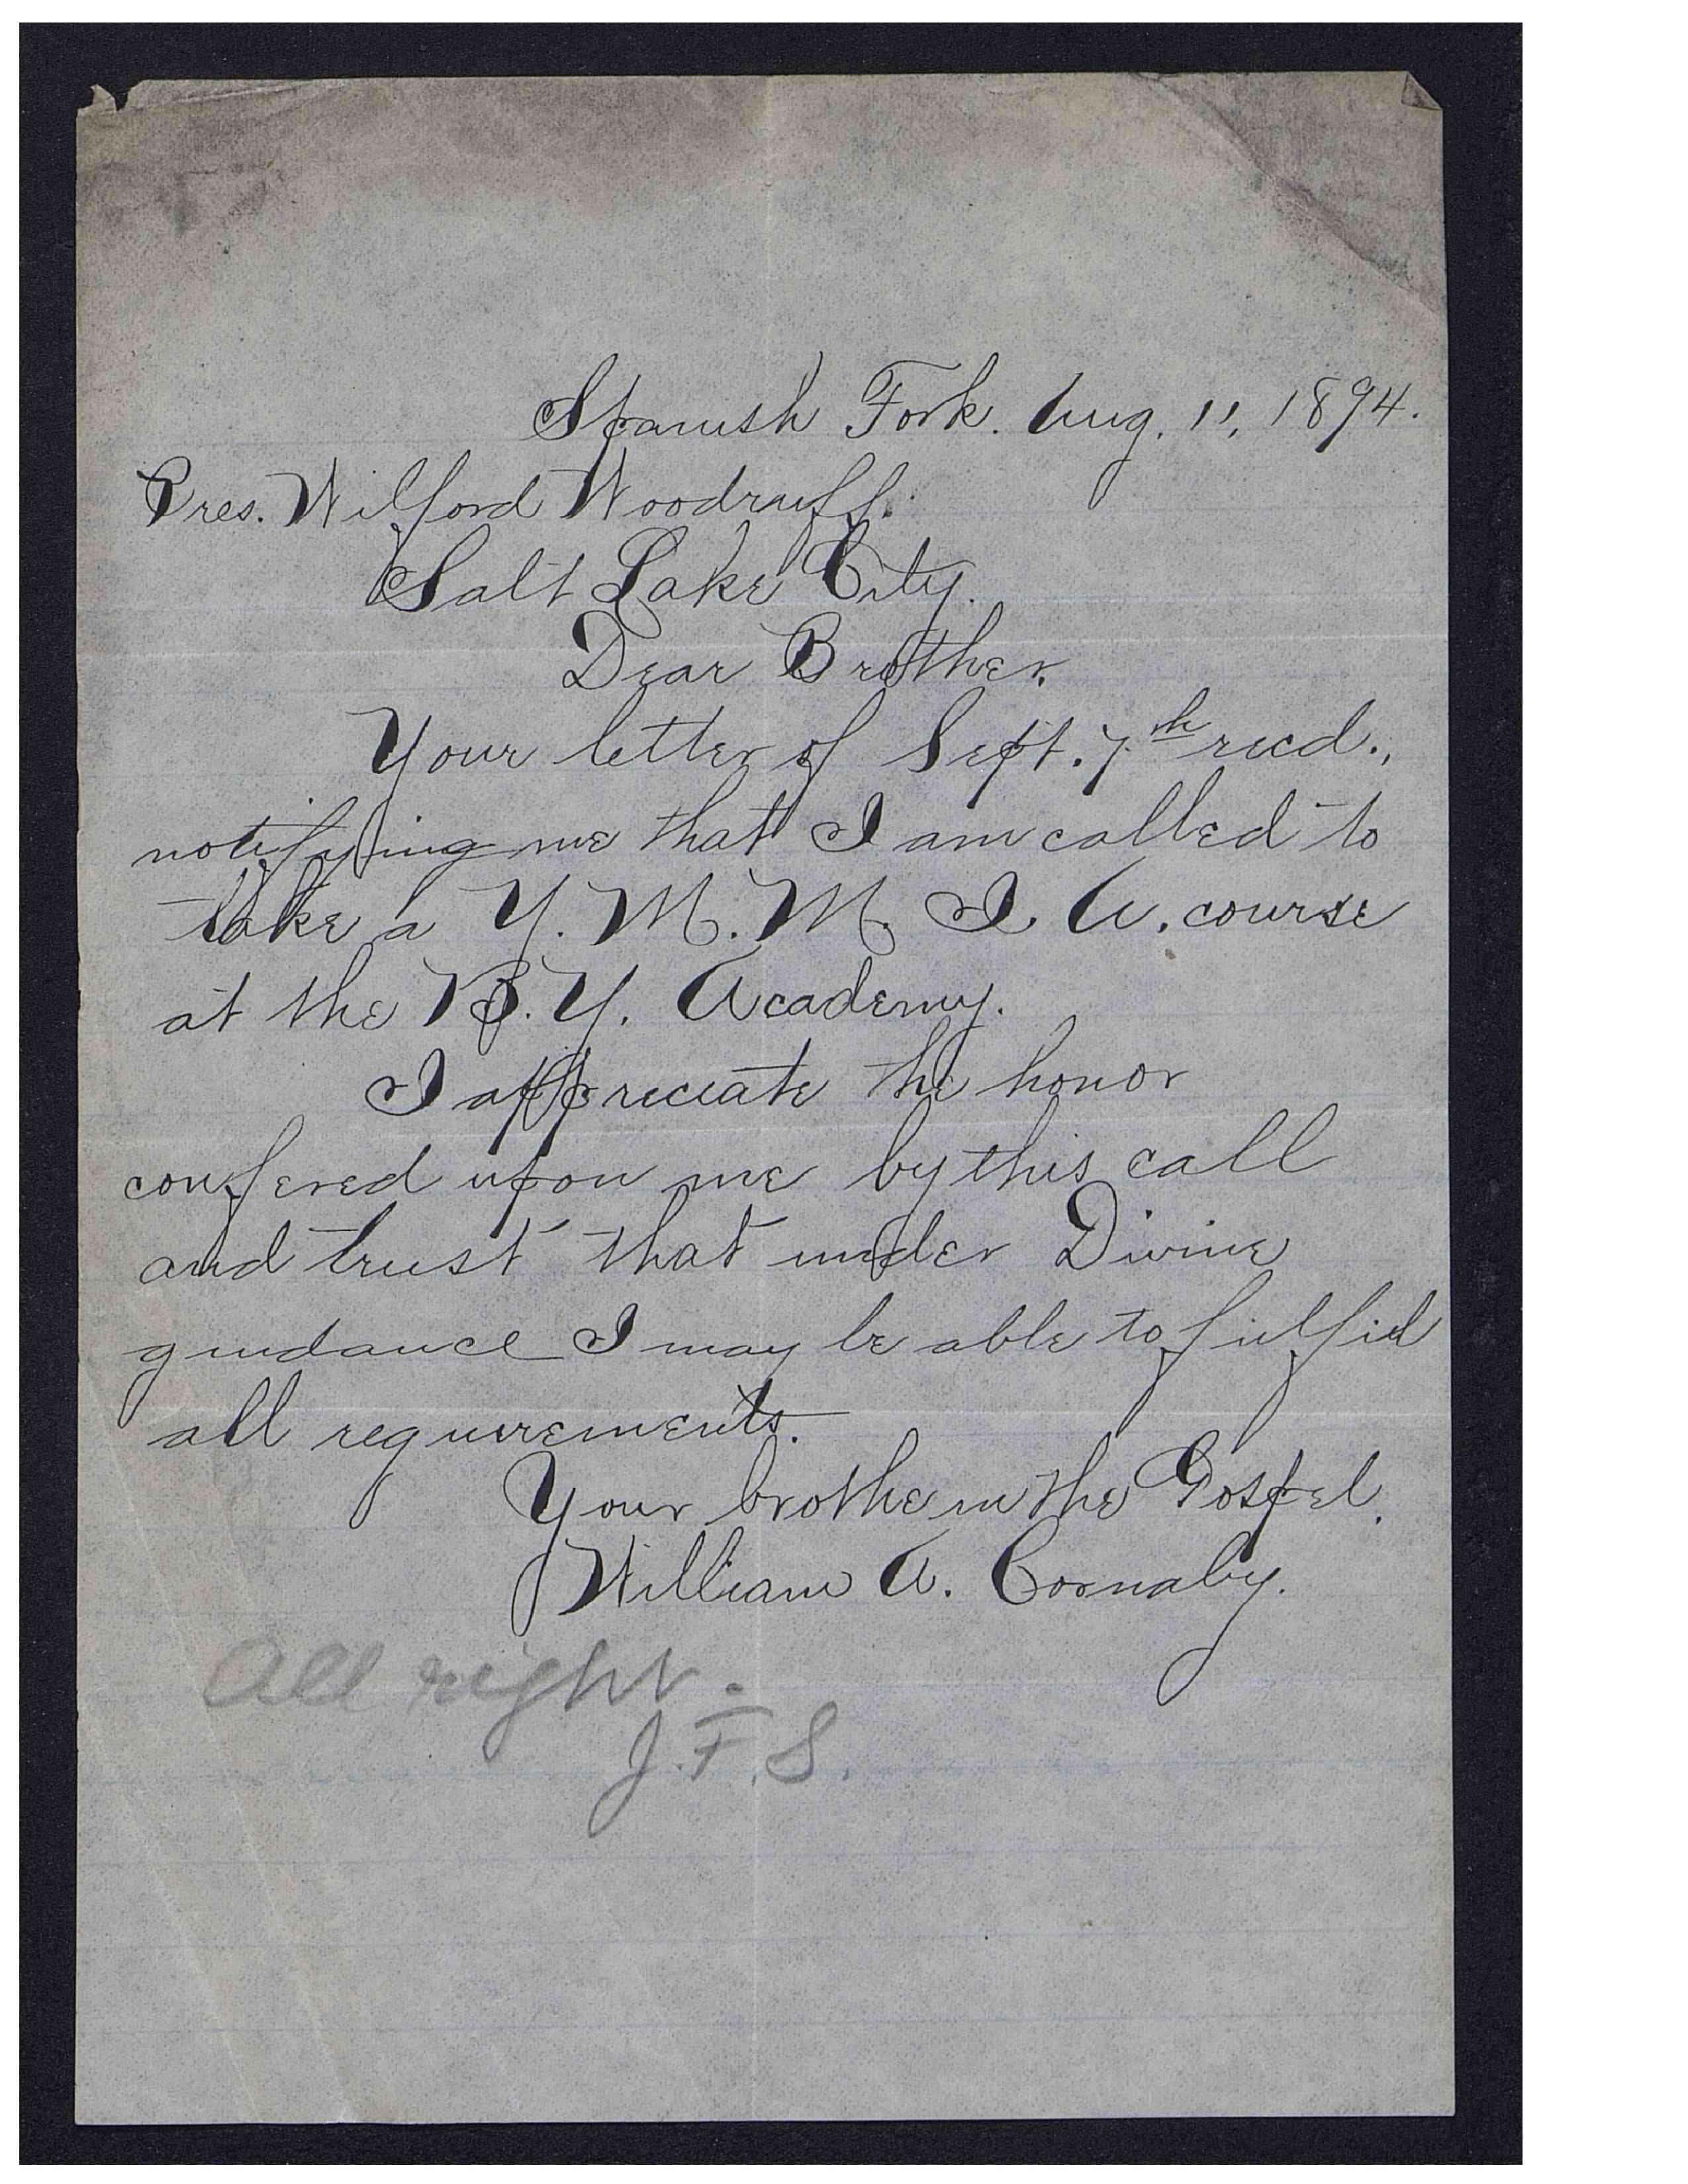 Spanish Fork. Aug. 11, 1894.
Pres. Wilford Woodruff.
Salt Lake City.
Dear Brother.
Your letter of Sept. 7th recd.,
notifying me that I am called to
take a Y. M. M. I. A. course
at the B. Y. Academy.
I appreciate the honor
confered upon me by this call
and trust that under Divine
guidance I may be able to fulfil
all requirements.
Your brothe in the Gospel.
William A. Cornaby.
All right.
J. F. S.